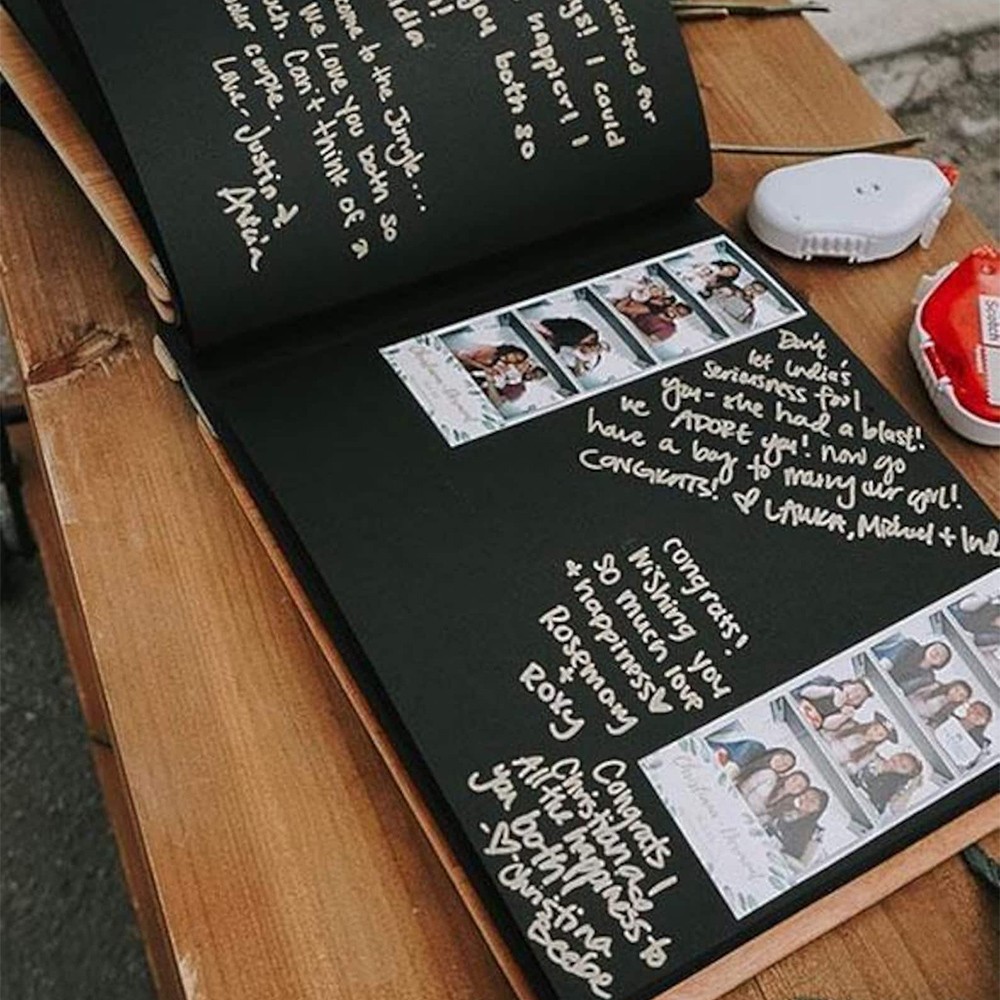 for
ys! I could
happier! I
you both so
come to the Jungle...
We Love You both so
Can't think of a
couple.
Love- Justin
Don't
let India's
seriousness fool
you- she had a blast!
we ADORE you! now go
have a boy to marry our girl!
CONGRATS! ♡ LAURA, Michael + Ind
congrats!
wishing you
so much love
+ happiness♥
Rosemary
+
Roxy
Congrats
All the happiness to
you both!
♡- Christina
Beebe
Scotch